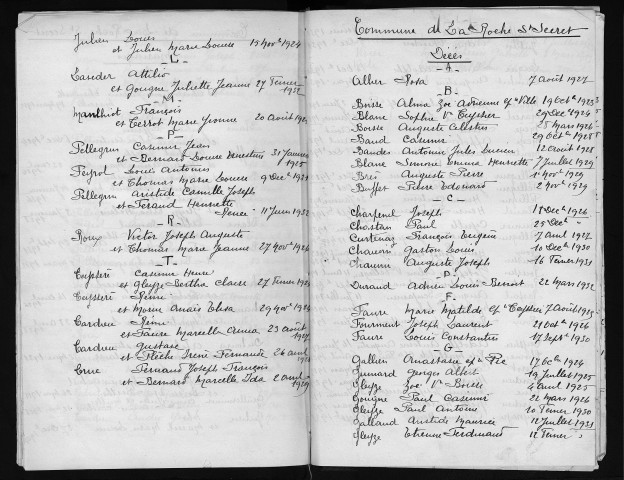 Julien Louis
et Julien Marie Louise 13 Nov^e 1924
- L -
Lander Attilio
et Gougne Juliette Jeanne 27 Février 1932
- M -
Manthiot François
et Terrot Marie Yvonne 20 Août
- P -
Pellegrin Casimir Jean
et Bernard Louise 31 Janvier 1925
Peyrol Louis Antonin
et Thomas Marie Louise 9 Déc^e 1931
Pellegrin Aristide Camille Joseph
et Feraud Henriette
11 Juin 1932
- R -
Roux Victor Joseph Auguste
et Thomas Marie Jeanne 27 Nov^e 1926
- T -
Casimir Henri
et Gleyze Bertha Claire 27 Février
Rémi
et Morin Anaïs Elisa 29 Nov^e
Tardieu Rémi
et Faure Marcelle Anna 23 Août
Tardieu Gustave
et Flèche Irène Fernande 26 Avril
Fernand Joseph François
et Bernard Marcelle Ida 2 Avril
Commune de La Roche St Secret
Décès
- A -
Alber Rosa 7 Août 1927
- B -
Bosse Alma Zoé Adrienne 19 Oct^e
Blanc Sophie V^ve 29 Déc^e 1924
Bosse Auguste 25 Mars 1926
Baud Casimir 29 Oct^e 1928
Baudet Antonin Jules Lucien 12 Août 1928
Blanc Simone Emma Henriette 7 Juillet 1929
Auguste Pierre 1 Nov^e 1929
Buffet Pierre Edouard 2 Nov^e 1929
- C -
Charpenel Joseph 18 Déc^e 1926
Chastan Paul 25 Déc^e "
François 7 Avril 1927
Chauvin Gaston Louis 10 Déc^e 1930
Chauvin Auguste Joseph 16 Février 1931
- D -
Durand Adrien Louis Benoit 22 Mars 1932
- F -
Faure Marie Matilde 7 Août
Fourment Joseph Laurent 21 Oct^e 1926
Faure Louis Constantin 17 Sept^e 1930
- G -
Gallien Anastasie 17 Oct^e 1924
Guinard George Albert 19 Juillet 1925
Gleyze Zoé V^ve Bosse 4 Avril 1925
Gougne Paul Casimir 22 Mars 1926
Gleyze Paul Antoine 10 Février 1930
Galland Aristide Maurice 12 Juillet 1931
Gleyze Etienne Ferdinand 12 Février "